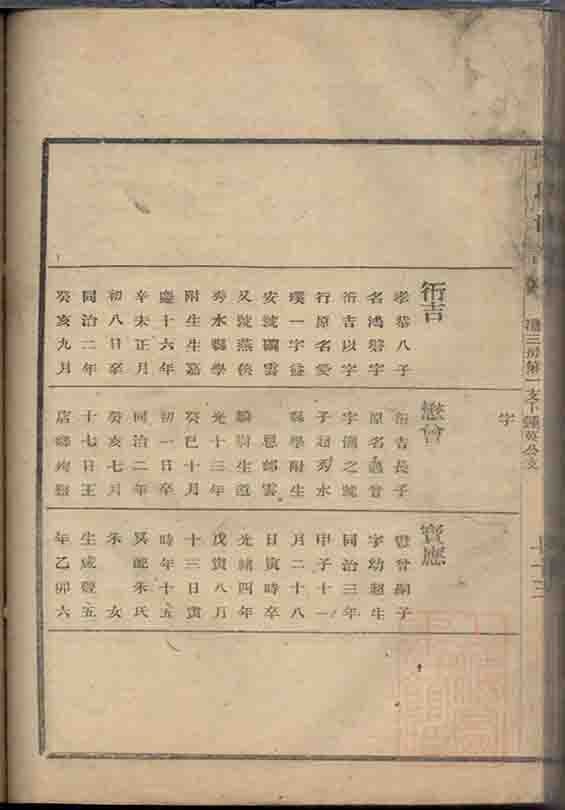 三房第一支下
字
衎吉
孝恭八子
名鴻磐字
衎吉以字
行原名愛
璞一字益
安號圃雲
又號燕
秀水縣學
附生生嘉
慶十六年
辛未正月
初八日卒
同治二年
癸亥九月
懋曾
衎吉長子
原名曾
字之號
子超秀水
縣學附生
恩卹雲
騎尉生道
光十三年
癸巳十月
初一日卒
同治二年
癸亥七月
十七日王
店鄉殉難
寶應
曾嗣子
字幼超生
同治三年
甲子十一
月二十八
日寅時卒
光緒四年
戊寅八月
十三日寅
時年十五
冥配朱氏
朱 女
生咸豐五
年乙卯六